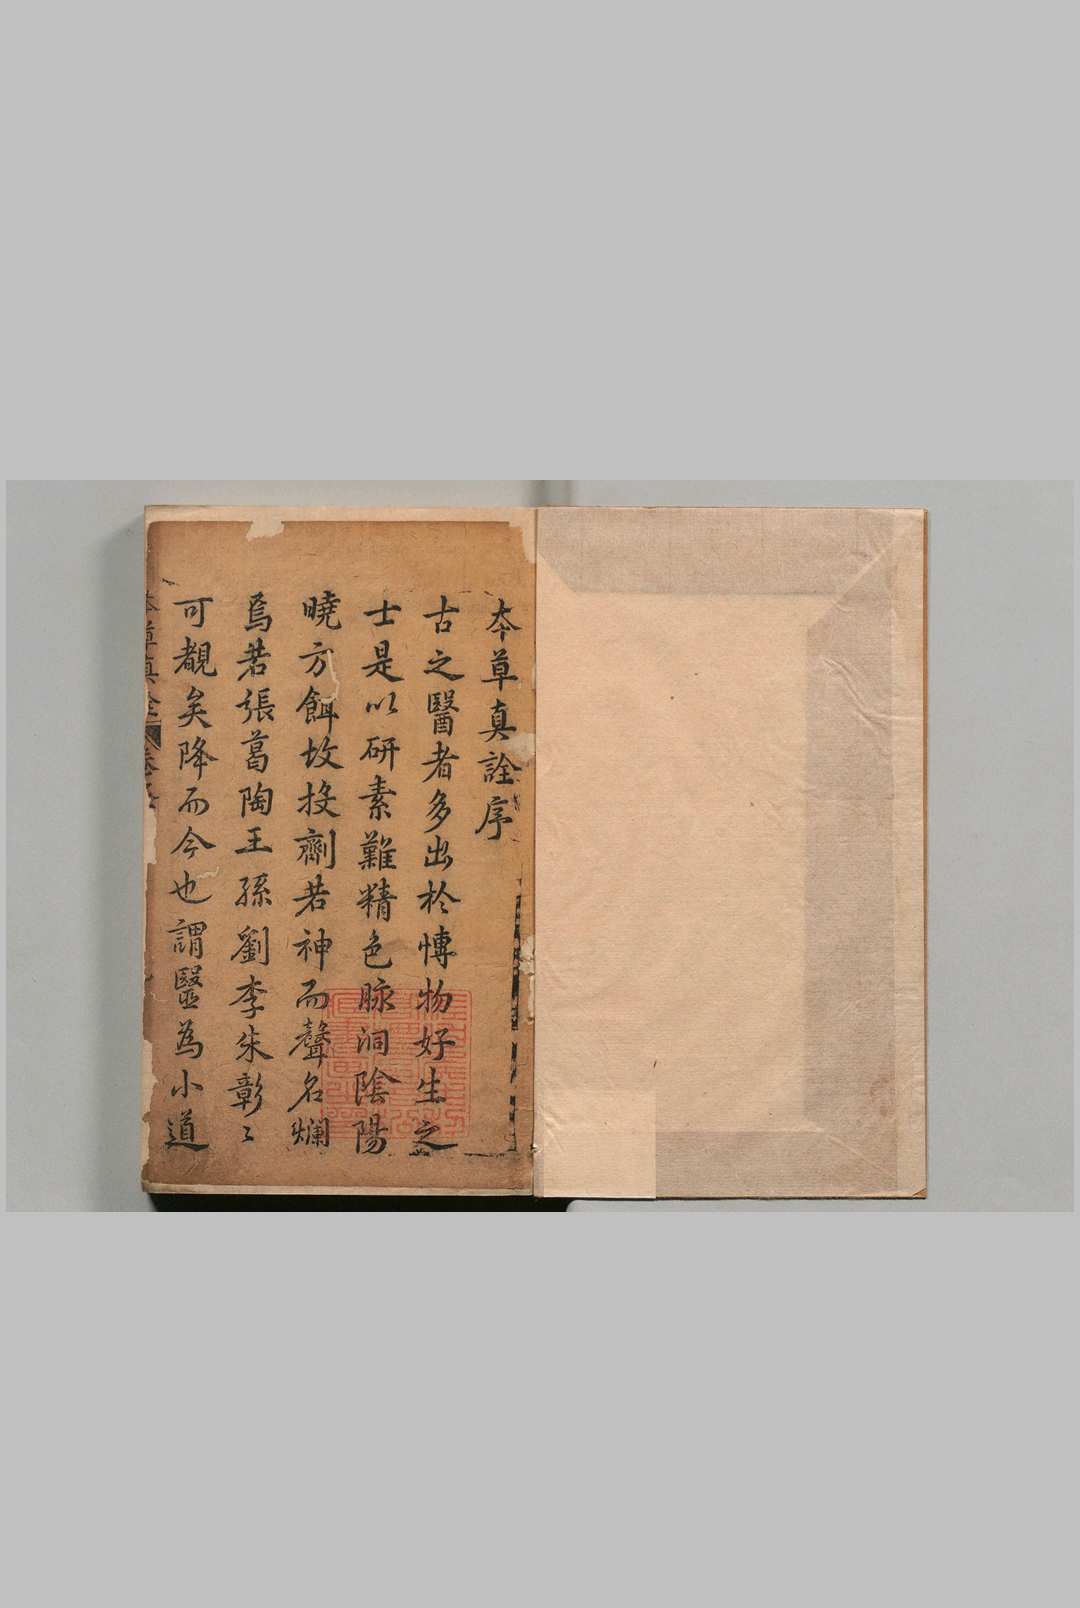 本草真詮序
古之醫者多出於愽物好生之
士是以研素難精色脉洞陰陽
曉方餌故投劑若神而聲名爛
焉若張葛陶王孫劉李朱彰〻
可覩矣降而今也謂醫為小道
本草真詮